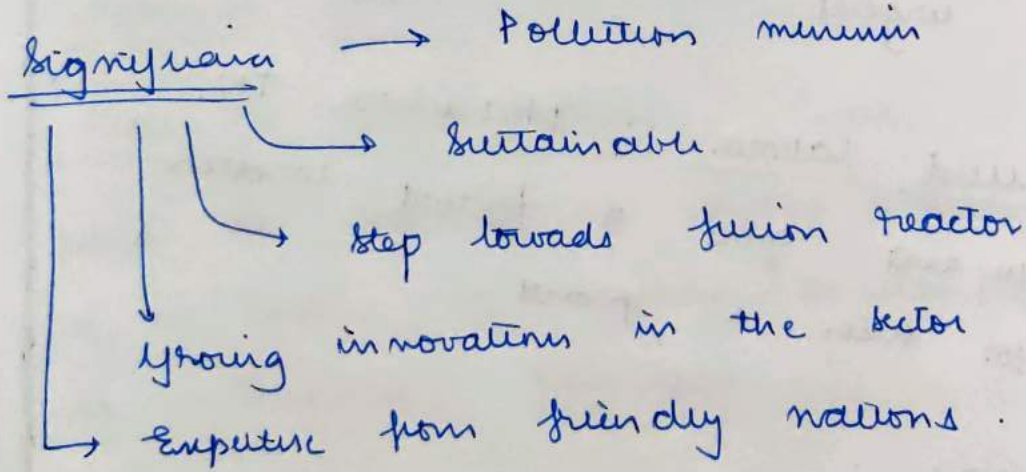 Significance → Pollution
Sustainable
Step towads fusion reactor
Growing innovations in the sector
Expertise from friendly nations.